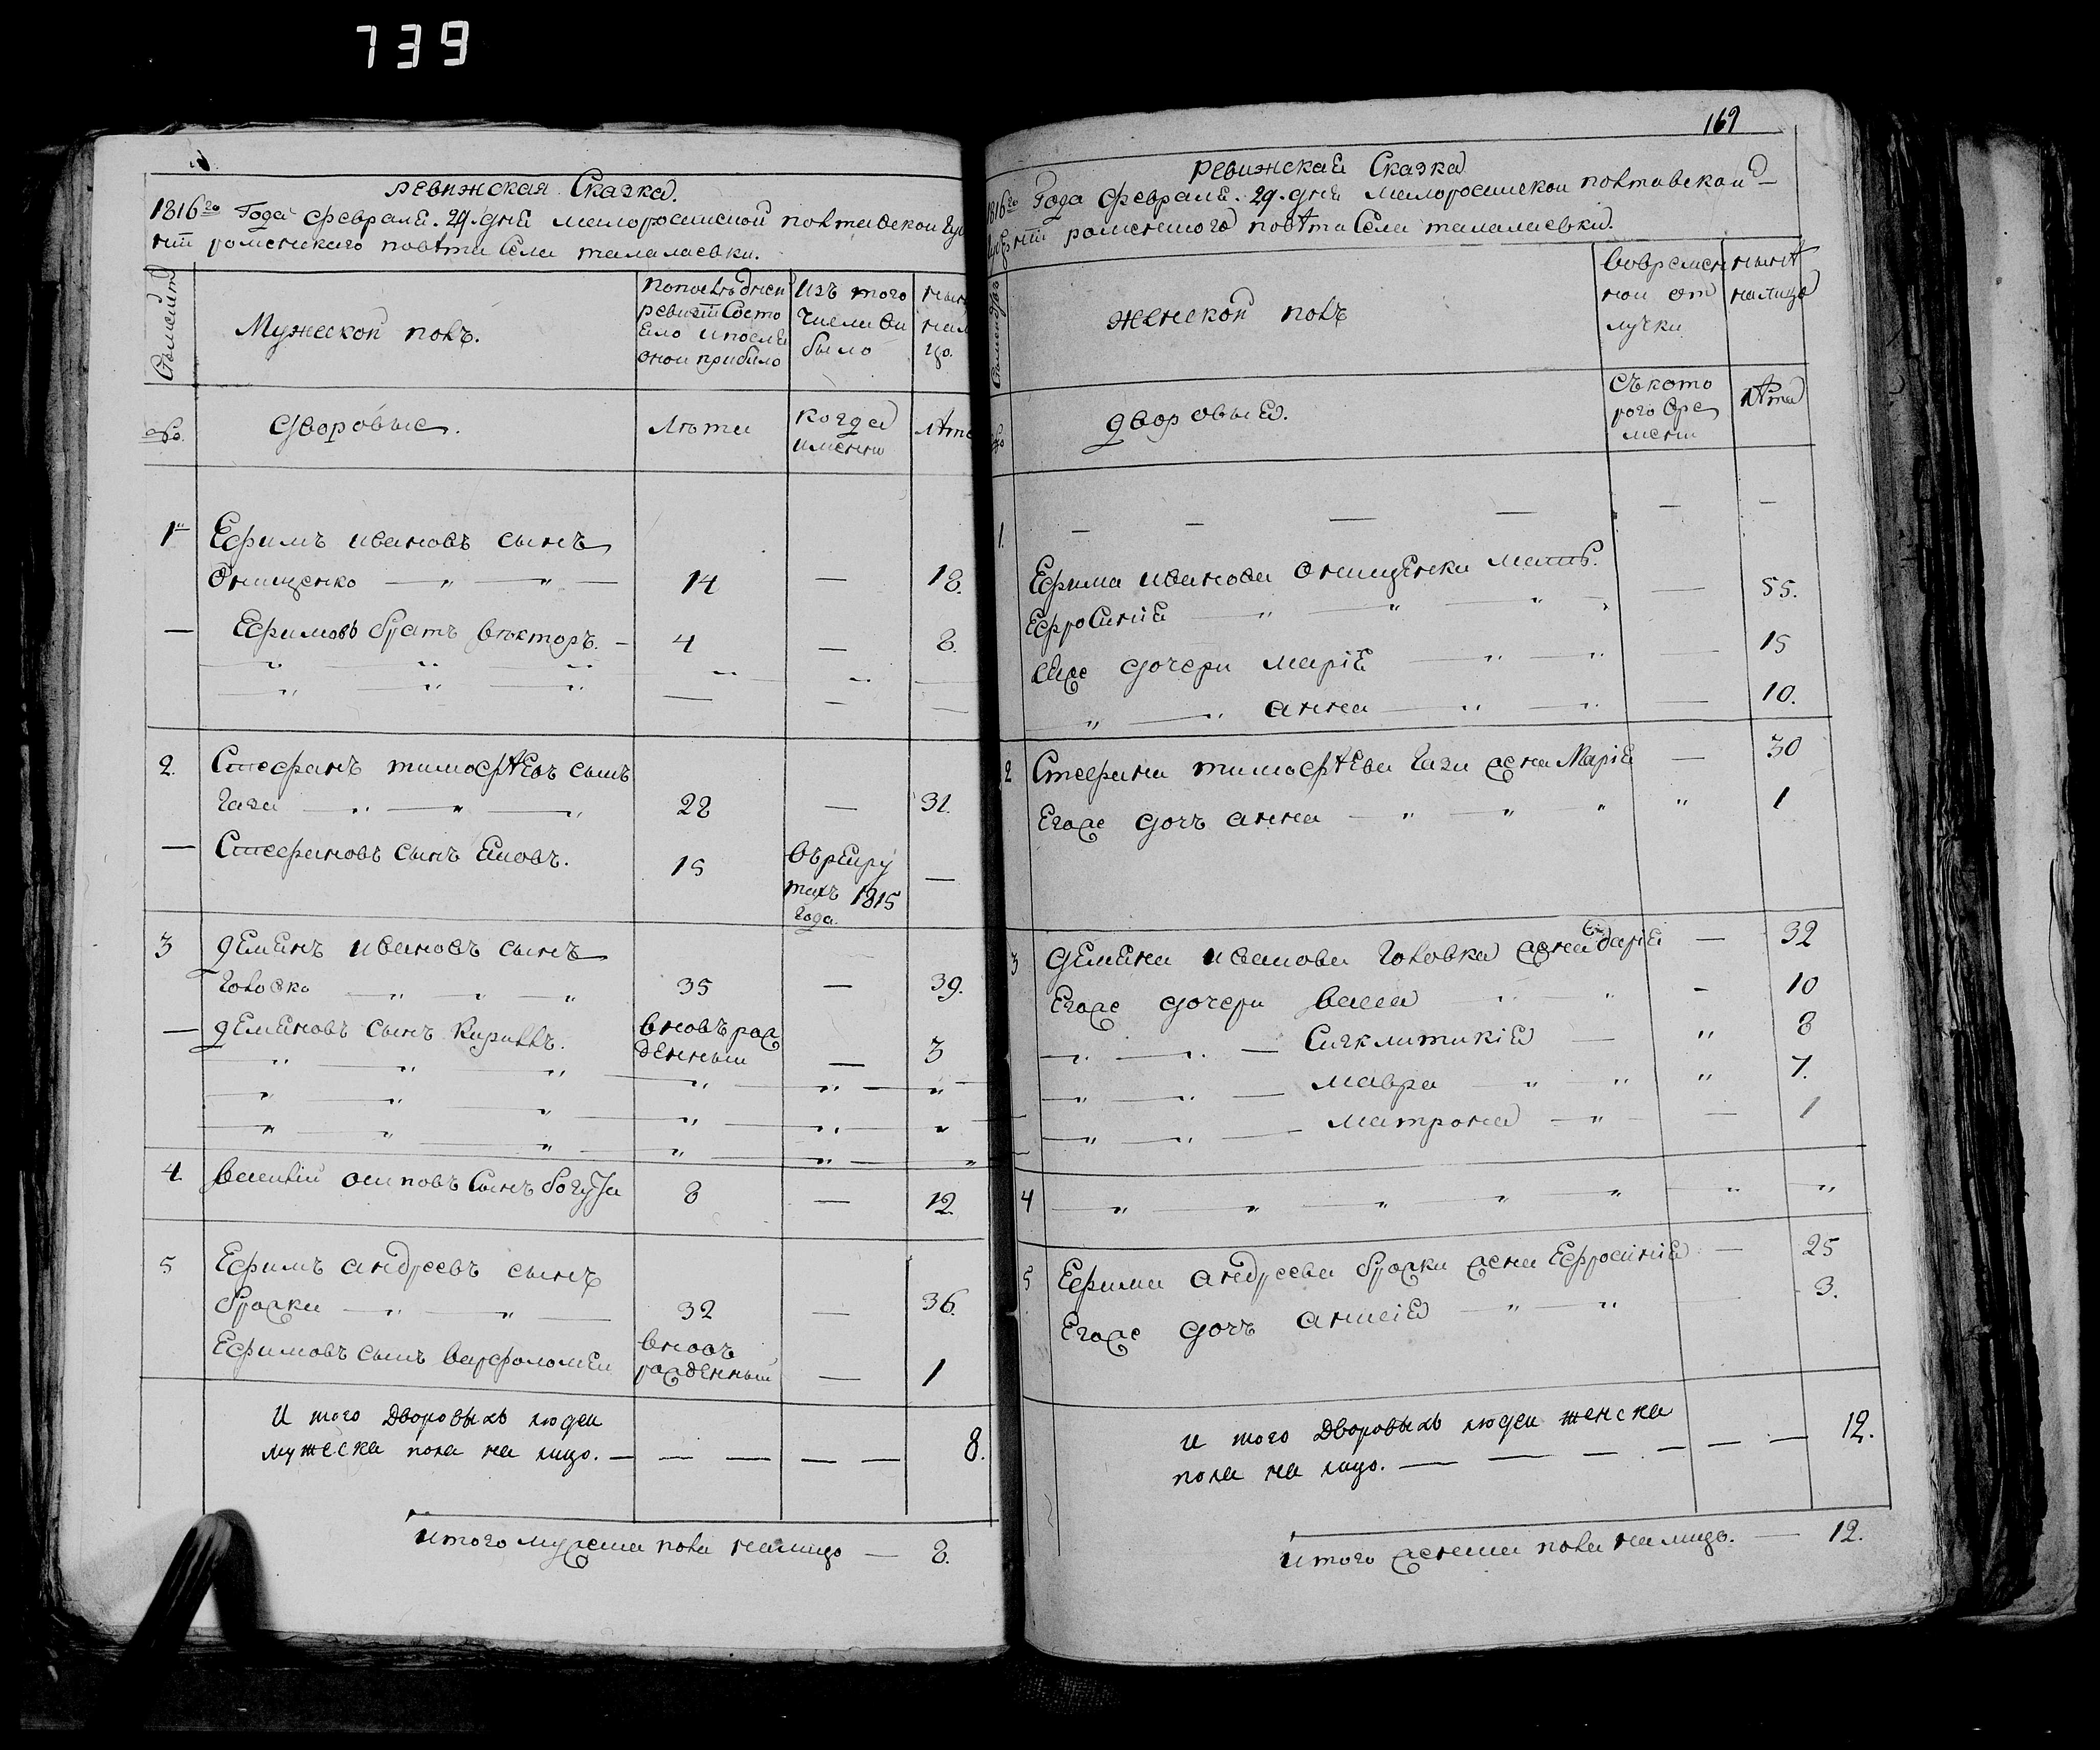 739
ревижская Сказка.
1816го Года февралѣ. 29. дня малоросийской полтавской гу
нїи роменскаго повѣта Села талалаевки.
Мужеской полъ.
попослѣдней
ревизїи Состо
яло и после
оной прибыло
Изъ того
числа вы
было
ны
нал
цо.
дворовые.
Лѣта
когда
именно
лѣта
1
Ефимъ ивановъ сынъ
Онищенко
14
—
18.
—
Ефимовъ братъ викторъ.
4
—
8.
2.
Стефанъ тимофѣевъ сынъ
Газа
28
—
31.
—
Стефановъ сынъ Яковъ.
15
въ рекру
тахъ 1815
года.
—
3
демянъ ивановъ сынъ
Головко
35
—
39.
—
демяновъ сынъ Кирилъ.
вновь рож
денный
—
3
4.
василий осиповъ Сынъ
8
—
12
5
Ефимъ андреевъ сынъ
бражка
32
—
36.
Ефимовъ сынъ варфоломей
вновь
рожденный
—
1
И того Дворовыхъ людей
мужеска пола на лицо. —
8.
итого мужеска пола налицо — 8.
169
ревижская Сказка
1816го Года февраля. 29. дня малоросийской полтавской
роменского повѣта Села талалаевки.
женской полъ
вовремен
ной от
лучки
нынѣ
налицо
дворовыя.
съ кото
рого вре
мени
лѣта
1.
Ефима иванова онищенка мать.
Ефросинїя
—
55.
Еяже дочери марїя
—
15
анна
—
10.
2
Стефана тимофѣева Гази жена Марїя
—
30
Егоже дочь анна
1
3
демяна иванова Головка жена дарїя
—
32
Егоже дочери васса
-
10
Сигклитикїя
8
мавра
7.
матрона
—
1
4
5
Ефима андреева бражки жена Ефросинїя
—
25
Егоже дочь анисїя
3.
И того Дворовыхъ людей женска
пола на лицо. —
12.
итого женска пола налицо. — 12.